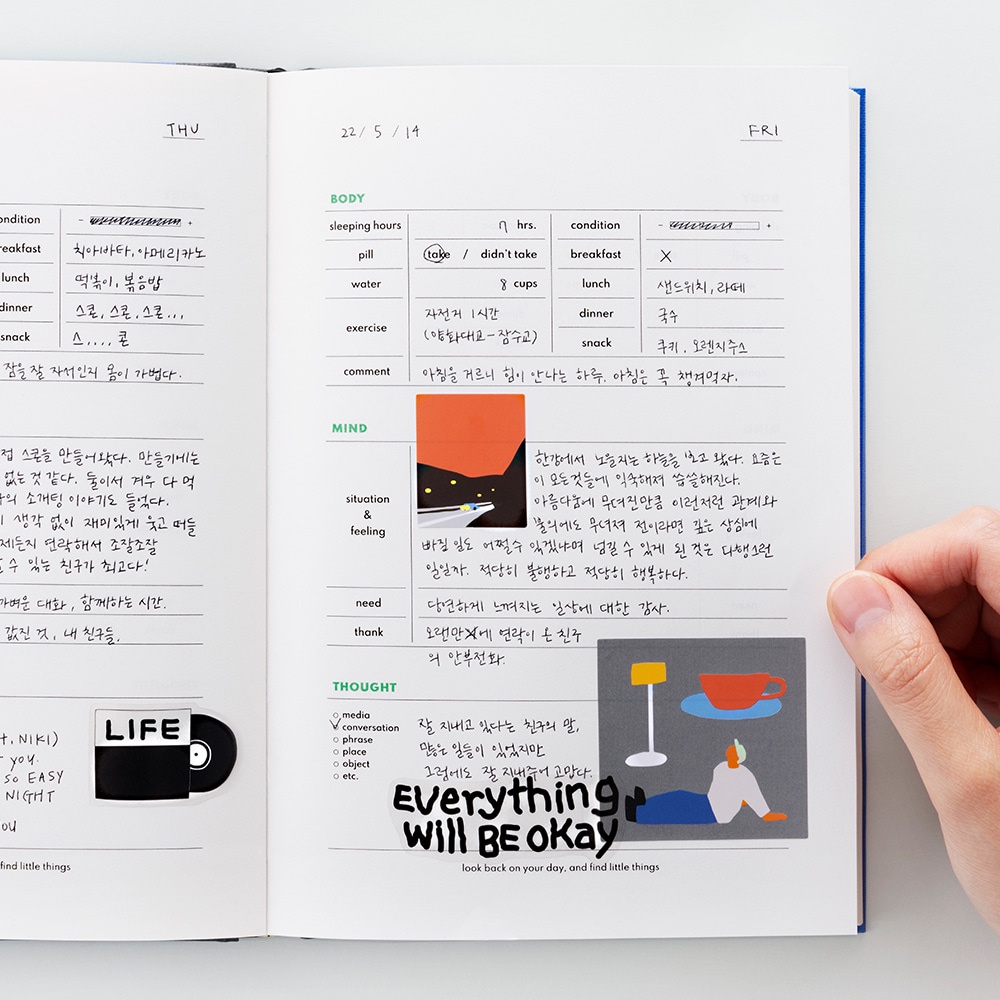 THU
condition - +
breakfast 치아바타, 아메리카노
lunch 떡볶이, 볶음밥
dinner 스콘, 스콘, 스콘...
snack 스.... 콘
잠을 잘 자서인지 몸이 가볍다.
접 스콘을 만들어왔다. 만들기에는
없는 것 같다. 둘이서 겨우 다 먹
의 소개팅 이야기도 들었다.
생각 없이 재미있게 웃고 떠들
제든지 연락해서 조잘조잘
수 있는 친구가 최고다!
가벼운 대화, 함께하는 시간.
값진 것, 내 친구들.
LIFE
, NIKI)
you.
SO EASY
NIGHT
find little things
22/ 5 / 14
FRI
BODY
sleeping hours 7 hrs. condition - +
pill take / didn't take breakfast X
water 8 cups lunch 샌드위치, 라떼
exercise 자전거 1시간 dinner 국수
(양화대교-잠수교) snack 쿠키, 오렌지주스
comment 아침을 거르니 힘이 안나는 하루. 아침은 꼭 챙겨먹자.
MIND
situation & feeling
한강에서 노을지는 하늘을 보고 왔다. 요즘은
이 모든것들에 익숙해져 씁쓸해진다.
아름다움에 무뎌진만큼 이런저런 관계와
불의에도 무뎌져 전이라면 깊은 상심에
빠질 일도 어쩔수 있겠냐며 넘길 수 있게 된 것은 다행스런
일일까. 적당히 불행하고 적당히 행복하다.
need 당연하게 느껴지는 일상에 대한 감사.
thank 오랜만에 연락이 온 친구
의 안부전화.
THOUGHT
media
conversation
phrase
place
object
etc.
잘 지내고 있다는 친구의 말,
많은 일들이 있었지만
그럼에도 잘 지내주어 고맙다.
EVerything
Will BE oKay
look back on your day, and find little things